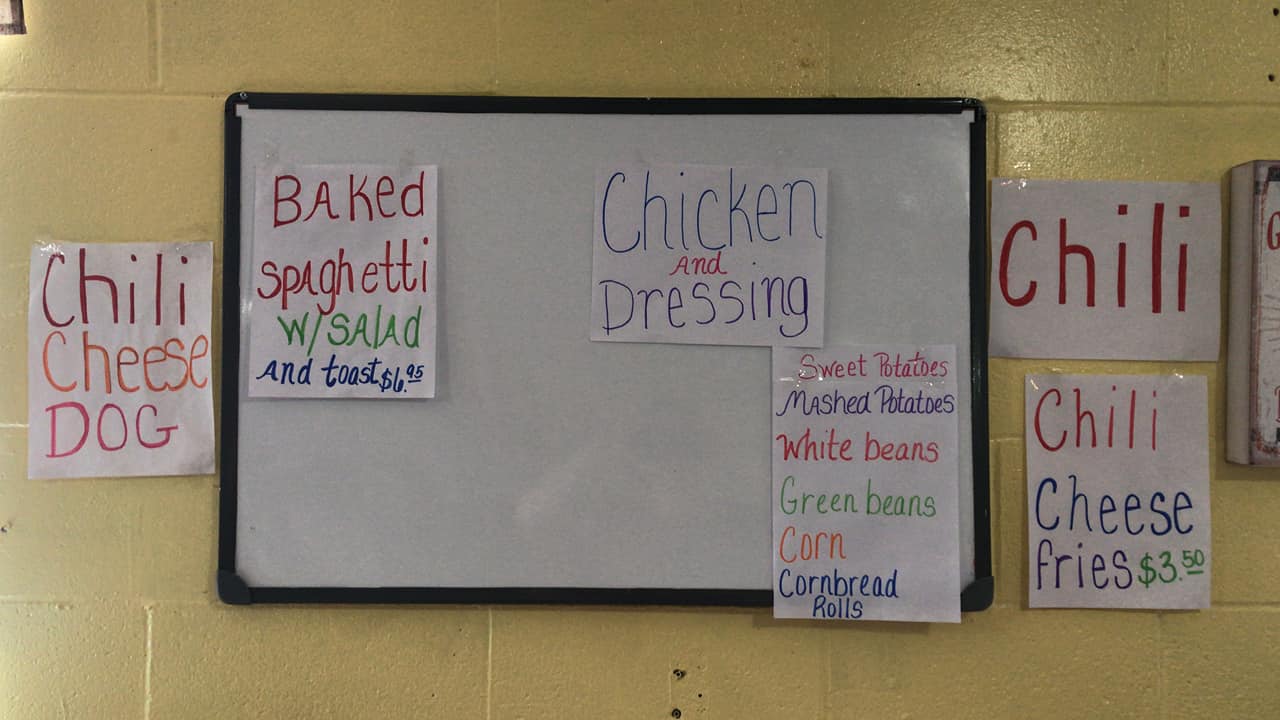 Chili
Cheese
DOG
BAKed
SPAghetti
W/SALAd
And toast $6.95
Chicken
And
Dressing
Sweet Potatoes
MAshed Potatoes
White beans
Green beans
Corn
Cornbread
Rolls
Chili
Chili
Cheese
fries $3.50